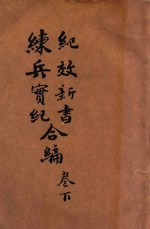 紀效新書
練兵實紀合編
叁下